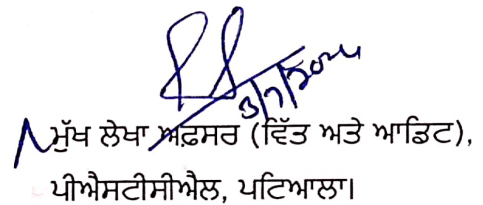 3/7/2024
ਮੁੱਖ ਲੇਖਾ ਅਫ਼ਸਰ (ਵਿੱਤ ਅਤੇ ਆਡਿਟ),
ਪੀਐਸਟੀਸੀਐਲ, ਪਟਿਆਲਾ।